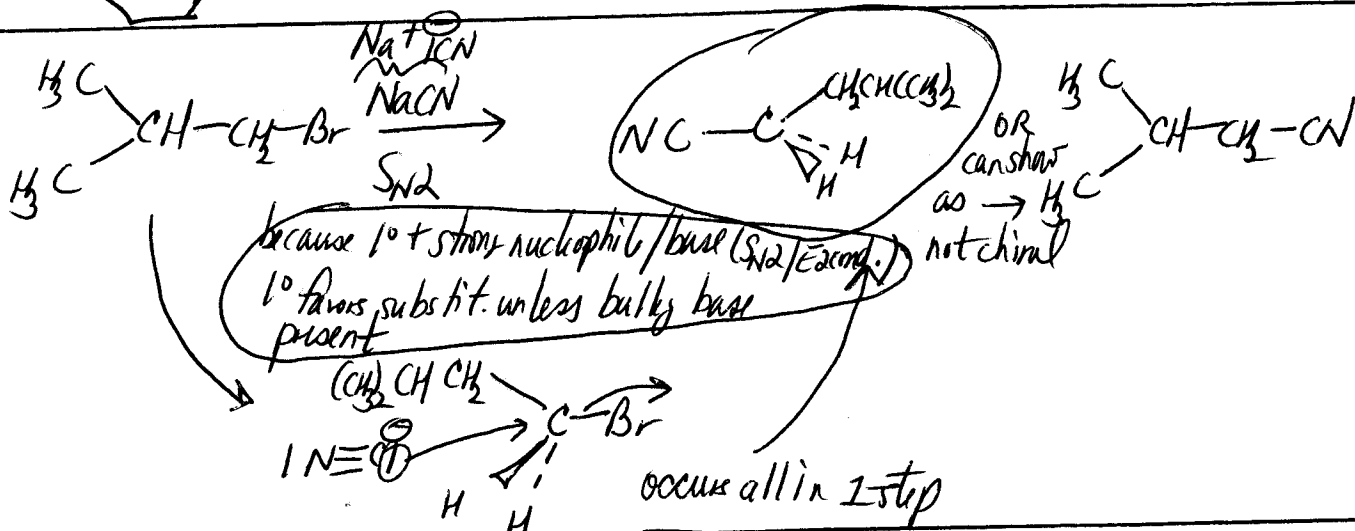 Na⁺ ⊖ICN
NaCN
H₃C
CH–CH₂–Br
H₃C
SN2
NC–C
CH₂CHCCH₃)₂
H
H
OR
can show
as →
not chiral
H₃C
CH–CH₂–CN
H₃C
because 1° + strong nucleophil/base (SN2/E2 cond.)
1° favors substit. unless bulky base
present
(CH₃)₂CHCH₂
C–Br
IN≡CI ⊖
H
H
occurs all in 1 step